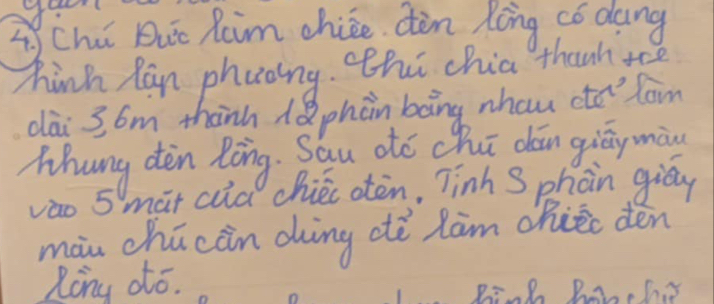 4. Chú Đức làm chiếc đèn lồng có dạng
hình lập phương. Chú chia thanh tre
dài 3,6m thành 12 phần bằng nhau để làm
khung đèn lồng. Sau đó chú dán giấy màu
vào 5 mặt của chiếc đèn. Tính S phần giấy
màu chú cần dùng để làm chiếc đèn
lồng đó.